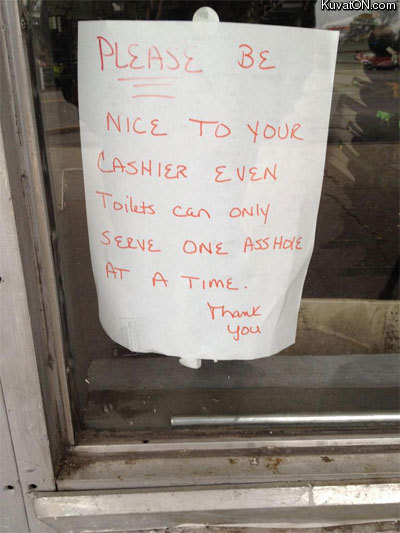 KuvatON.com
PLEASE BE
NICE TO YOUR
CASHIER EVEN
Toilets can only
SERVE ONE ASSHOLE
AT A TIME.
Thank
you